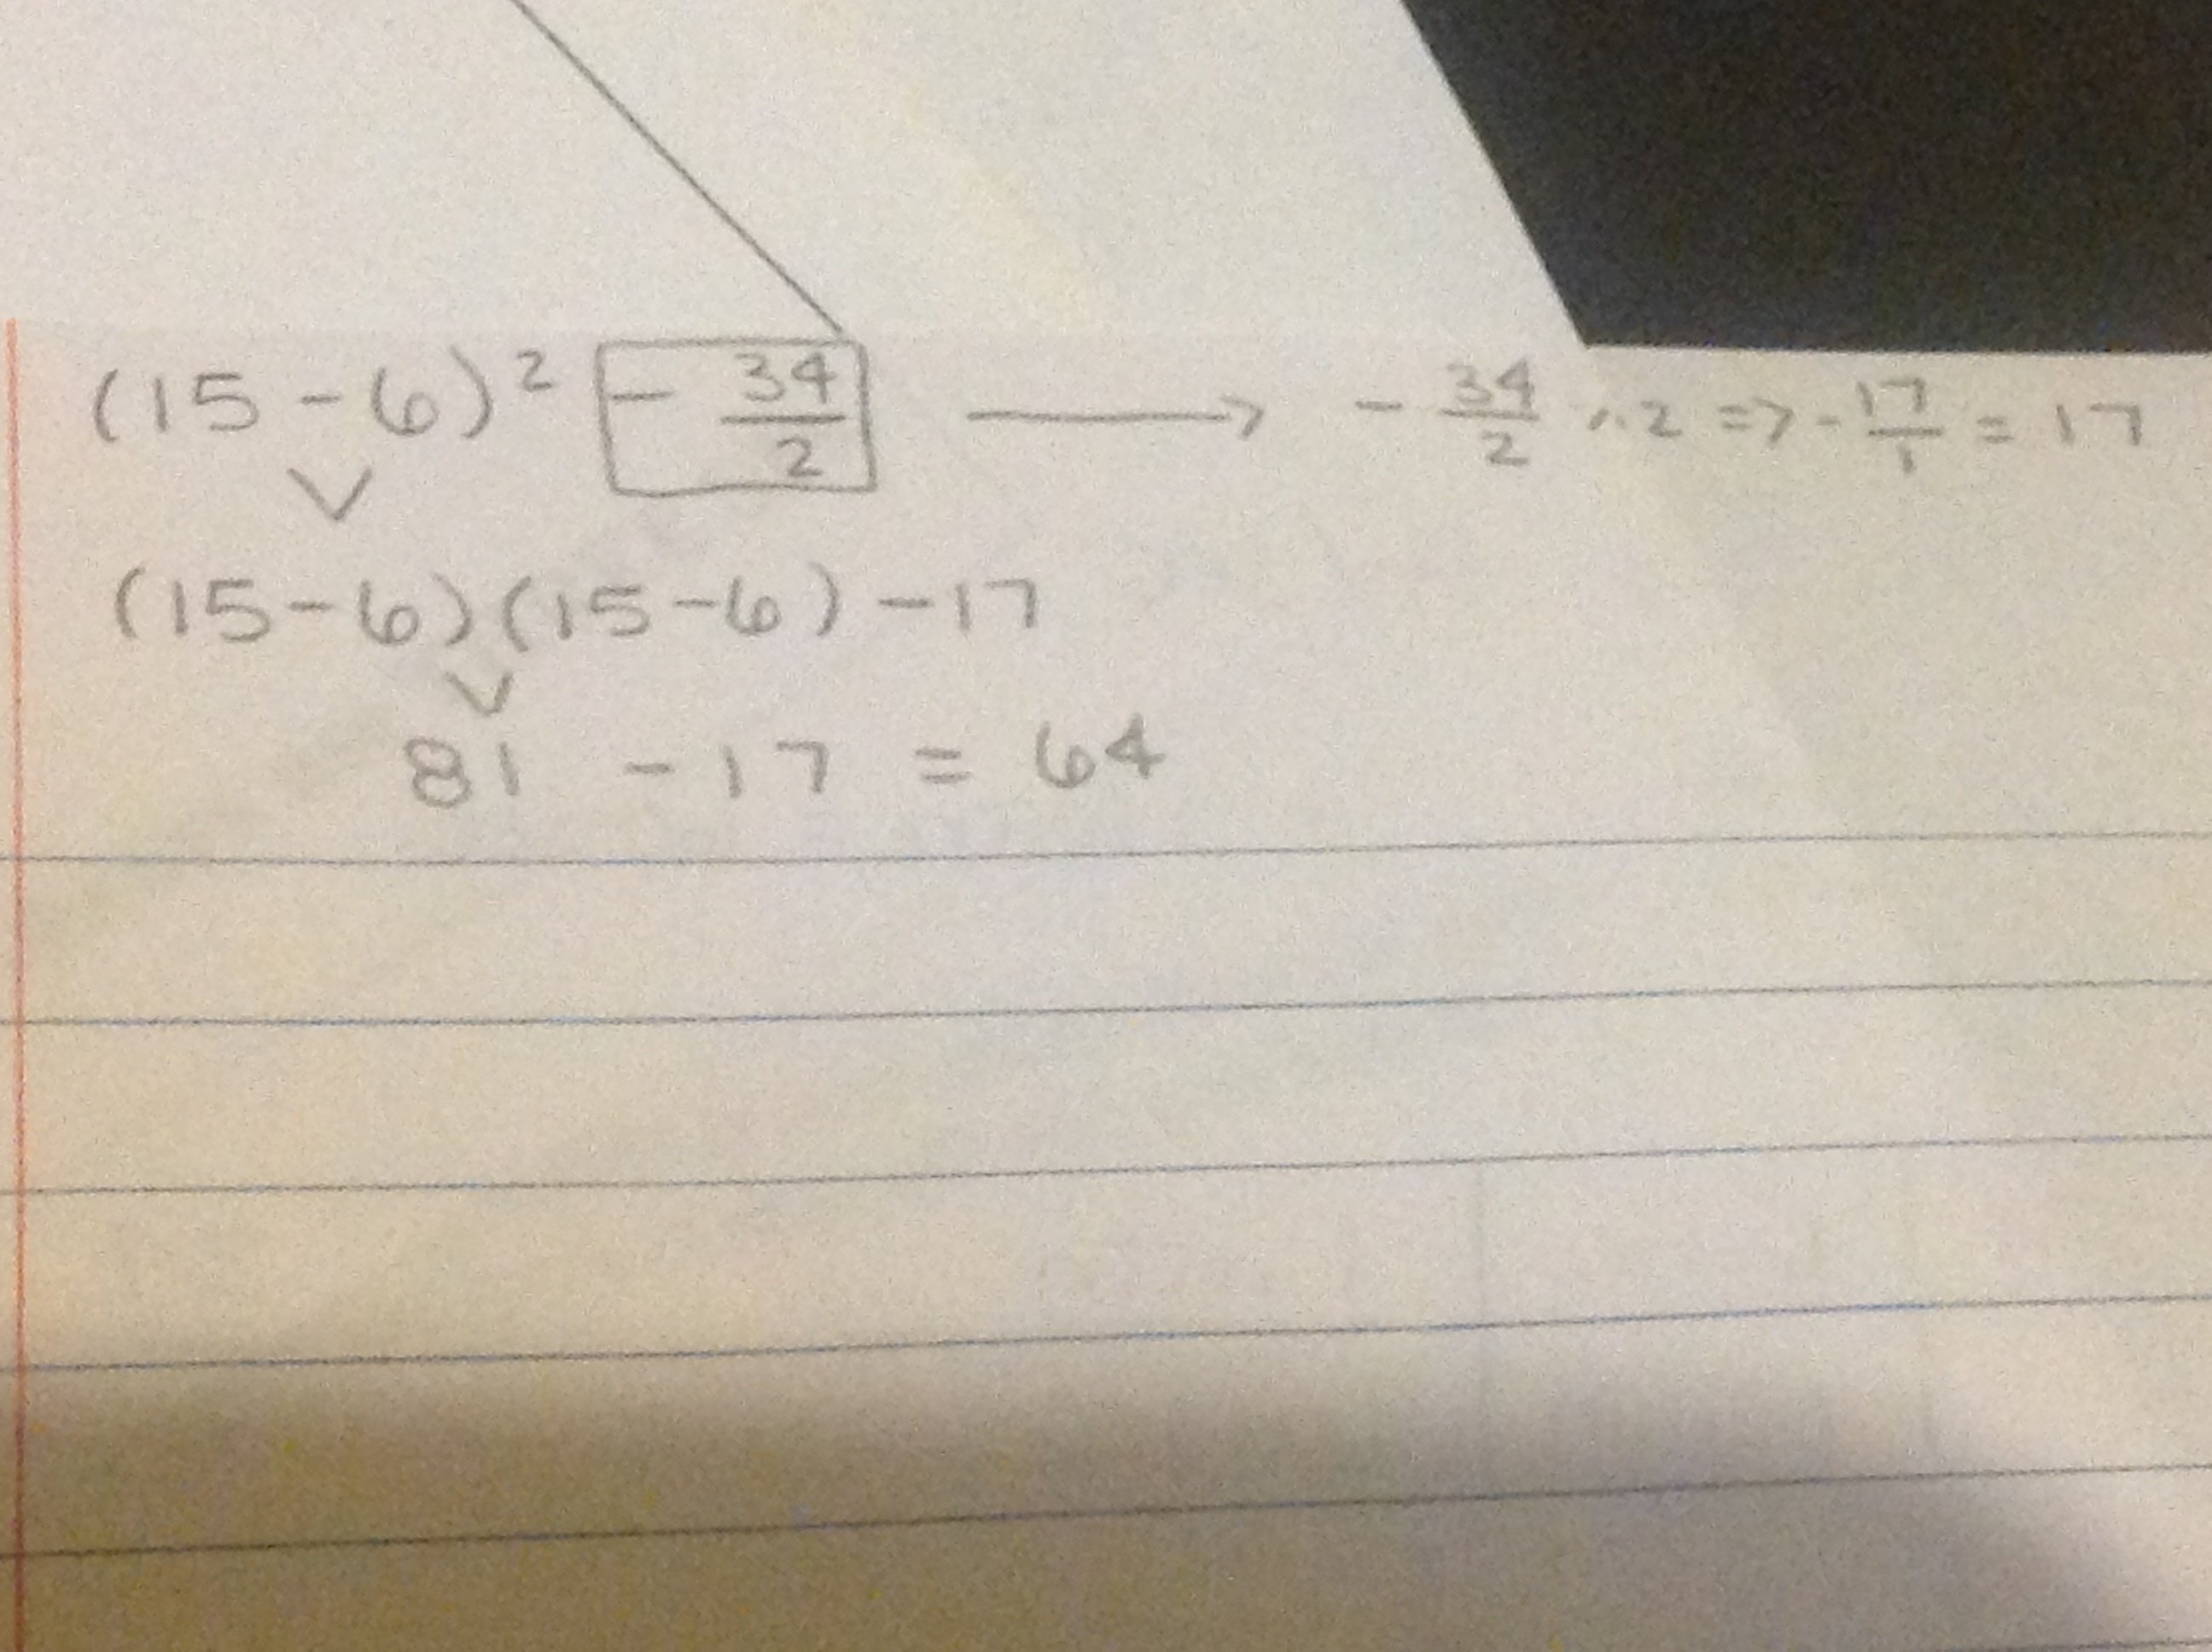 (15 - 6)² - 34/2 → - 34/2 ÷ 2 => - 17/1 = 17
(15 - 6)(15 - 6) - 17
81 - 17 = 64